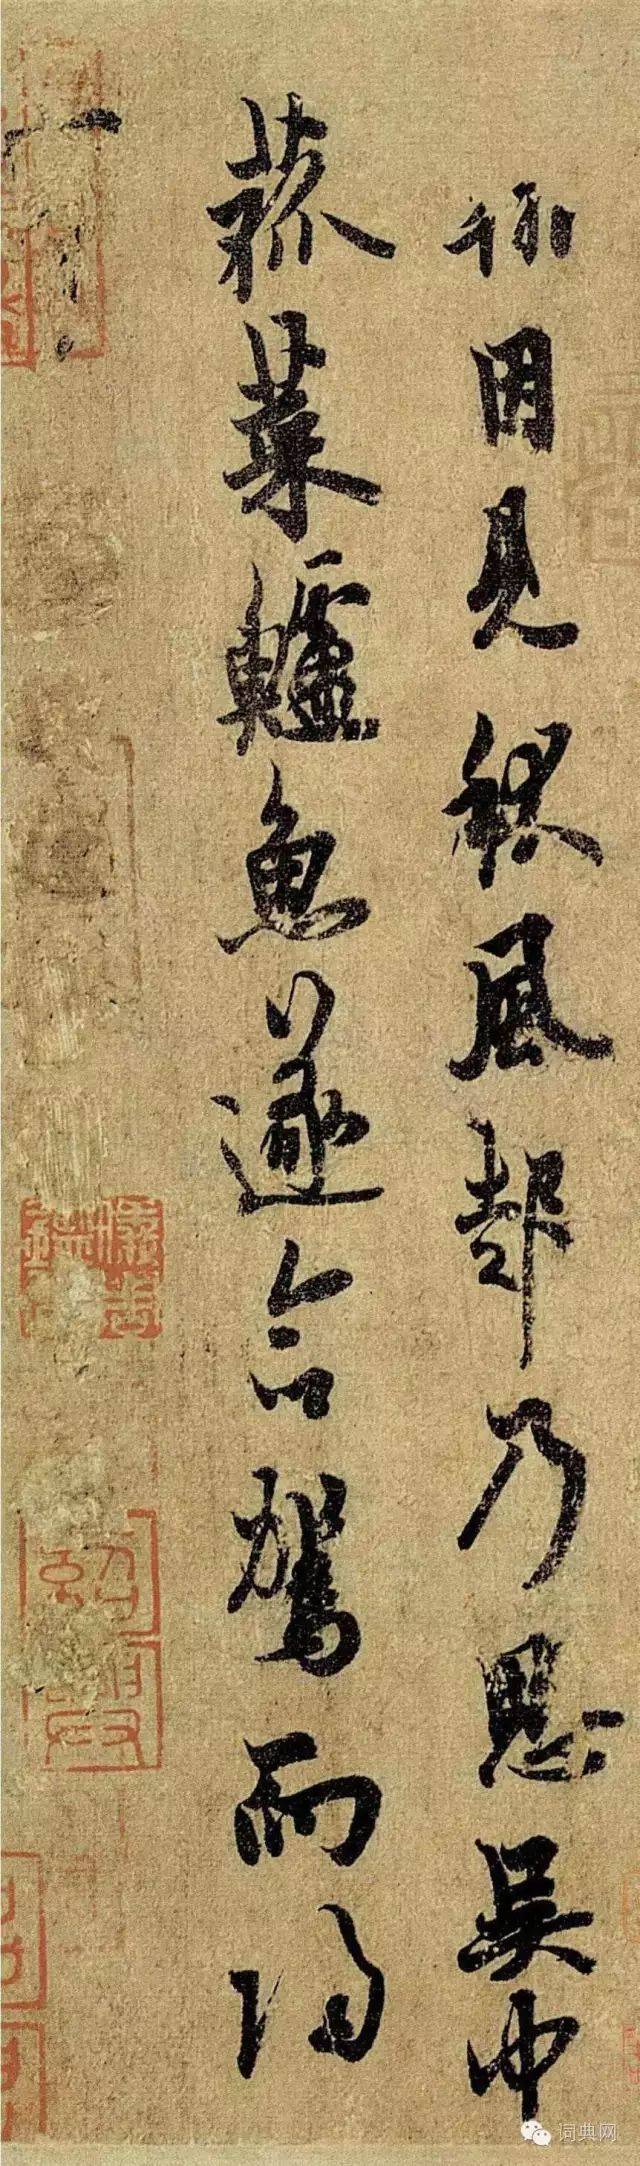 因見秋風起乃思吳中
菰菜鱸魚遂命駕而歸
紹
興
词典网